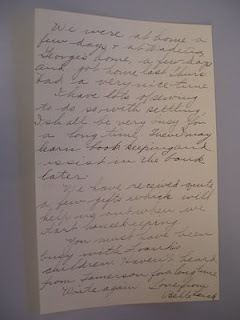 We were at home a
few days & at Wadena,
George's home, a few days
and got home last Thurs.
Had a very nice time
I have lots of sewing
to do so, with settling,
I shall be very busy for
a long time, may
learn book keeping and
assist in the bank
later.
We have received quite
a few gifts which will
help us out when we
start housekeeping
You must have been
busy with Frank's
children. Haven't heard
from for long time
Write again. Love from